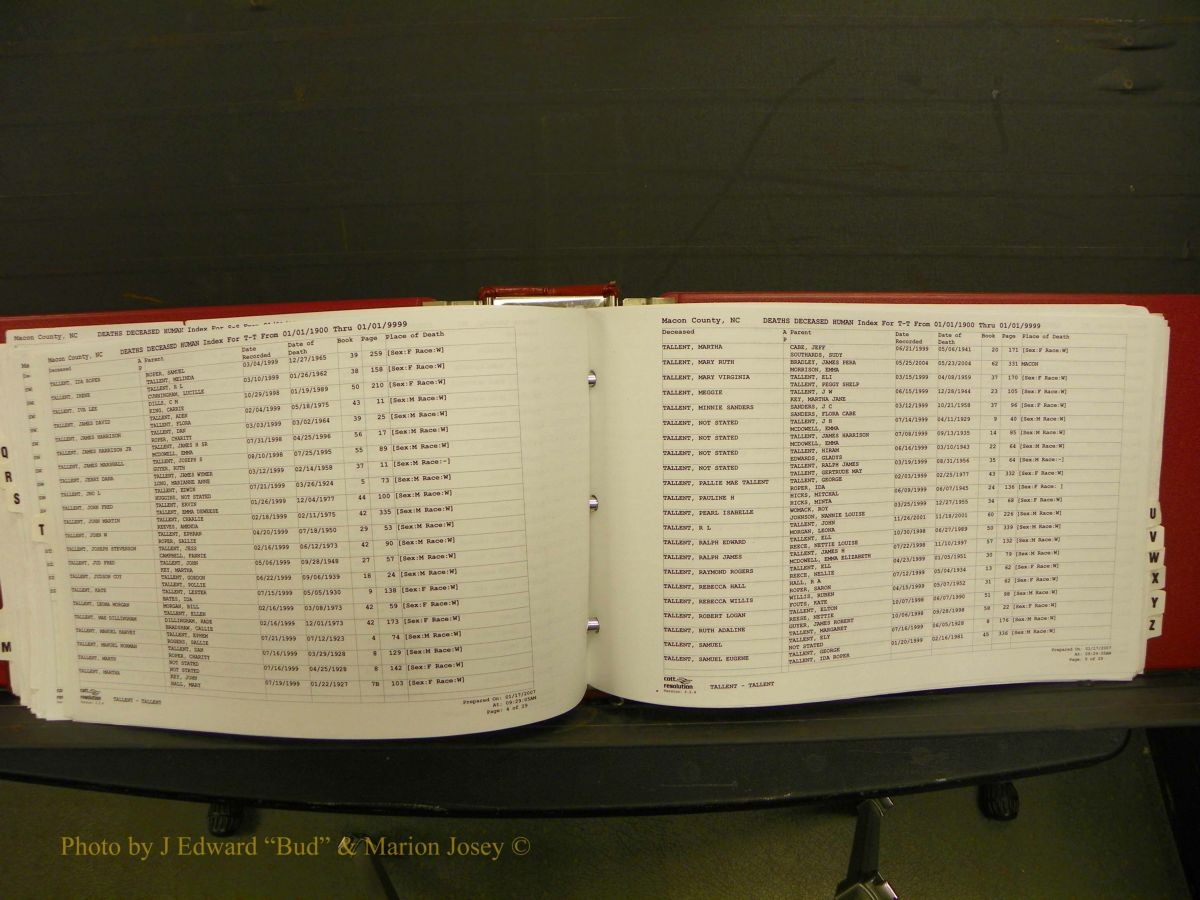 Macon County, NC DEATHS DECEASED HUMAN Index For
Macon County, NC DEATHS DECEASED HUMAN Index For T-T From 01/01/1900 Thru 01/01/9999
Deceased A Parent Date Recorded Date of Death Book Page Place of Death
TALLENT, IDA ROPER ROPER, SAMUEL 03/04/1999 12/27/1965 39 259 [Sex:F Race:W]
TALLENT, MELINDA
TALLENT, IRENE TALLENT, R L 03/10/1999 01/26/1962 38 158 [Sex:F Race:W]
CUNNINGHAM, LUCILLE
TALLENT, IVA LEE DILLS, C M 10/29/1998 01/19/1989 50 210 [Sex:F Race:W]
KING, CARRIE
TALLENT, JAMES DAVID TALLENT, ADEN 02/04/1999 05/18/1975 43 11 [Sex:M Race:W]
TALLENT, FLORA
TALLENT, JAMES HARRISON TALLENT, DAN 03/03/1999 03/02/1964 39 25 [Sex:M Race:W]
ROPER, CHARITY
TALLENT, JAMES HARRISON JR TALLENT, JAMES H SR 07/31/1998 04/25/1996 56 17 [Sex:M Race:W]
MCDOWELL, EMMA
TALLENT, JAMES MARSHALL TALLENT, JOSEPH S 08/10/1998 07/25/1995 55 89 [Sex:M Race:W]
GUYER, RUTH
TALLENT, JERRY DARR TALLENT, JAMES WYMER 03/12/1999 02/14/1958 37 11 [Sex:M Race:-]
LONG, MARIANNE ANNE
TALLENT, JNO L TALLENT, EDWIN 07/21/1999 03/26/1924 5 73 [Sex:M Race:W]
HUGGINS, NOT STATED
TALLENT, JOHN FRED TALLENT, ERVIN 01/26/1999 12/04/1977 44 100 [Sex:M Race:W]
TALLENT, EMMA DEWEESE
TALLENT, JOHN MARTIN TALLENT, CHARLIE 02/18/1999 02/11/1975 42 335 [Sex:M Race:W]
REEVES, AMENDA
TALLENT, JOHN W TALLENT, EPHRAN 04/20/1999 07/18/1950 29 53 [Sex:M Race:W]
ROPER, SALLIE
TALLENT, JOSEPH STEVENSON TALLENT, JESS 02/16/1999 06/12/1973 42 90 [Sex:M Race:W]
CAMPBELL, FANNIE
TALLENT, JUD FRED TALLENT, JOHN 05/06/1999 09/28/1948 27 57 [Sex:M Race:W]
KEY, MARTHA
TALLENT, JUDSON COY TALLENT, GORDON 06/22/1999 09/06/1939 18 24 [Sex:M Race:W]
TALLENT, POLLIE
TALLENT, KATE TALLENT, LESTER 07/15/1999 05/05/1930 9 138 [Sex:F Race:W]
BATES, IDA
TALLENT, LEONA MORGAN MORGAN, BILL 02/16/1999 03/08/1973 42 59 [Sex:F Race:W]
TALLENT, ELLEN
TALLENT, MAE DILLINGHAM DILLINGHAM, WADE 02/16/1999 12/01/1973 42 173 [Sex:F Race:W]
BRADSHAW, CALLIE
TALLENT, MANUEL HARVEY TALLENT, EPHEM 07/21/1999 07/12/1923 4 74 [Sex:M Race:W]
ROGERS, SALLIE
TALLENT, MANUEL NORMAN TALLENT, SAM 07/16/1999 03/29/1928 8 129 [Sex:M Race:W]
ROPER, CHARITY
TALLENT, MARTH NOT STATED 07/16/1999 04/25/1928 8 142 [Sex:F Race:W]
NOT STATED
TALLENT, MARTHA KEY, JOHN 07/19/1999 01/22/1927 7B 103 [Sex:F Race:W]
HALL, MARY
cott resolution
TALLENT - TALLENT
Prepared On: 01/17/2007
At: 09:29:05AM
Page: 4 of 29
Macon County, NC DEATHS DECEASED HUMAN Index For T-T From 01/01/1900 Thru 01/01/9999
Deceased A P Parent Date Recorded Date of Death Book Page Place of Death
TALLENT, MARTHA CABE, JEFF 06/21/1999 05/06/1941 20 171 [Sex:F Race:W]
SOUTHARDS, SUDY
TALLENT, MARY RUTH BRADLEY, JAMES PERA 05/25/2004 05/23/2004 62 331 MACON
MORRISON, EMMA
TALLENT, MARY VIRGINIA TALLENT, ELI 03/15/1999 04/08/1959 37 170 [Sex:F Race:W]
TALLENT, PEGGY SHELP
TALLENT, MEGGIE TALLENT, J W 06/15/1999 12/28/1944 23 105 [Sex:F Race:W]
KEY, MARTHA JANE
TALLENT, MINNIE SANDERS SANDERS, J C 03/12/1999 10/21/1958 37 96 [Sex:F Race:W]
SANDERS, FLORA CABE
TALLENT, NOT STATED TALLENT, J H 07/14/1999 04/11/1929 9 40 [Sex:M Race:W]
MCDOWELL, EMMA
TALLENT, NOT STATED TALLENT, JAMES HARRISON 07/09/1999 09/13/1935 14 85 [Sex:M Race:W]
MCDOWELL, EMMA
TALLENT, NOT STATED TALLENT, HIRAM 06/16/1999 03/10/1943 22 64 [Sex:M Race:W]
EDWARDS, GLADYS
TALLENT, NOT STATED TALLENT, RALPH JAMES 03/19/1999 08/31/1956 35 64 [Sex:M Race:-]
TALLENT, GERTRUDE MAT
TALLENT, PALLIE MAE TALLENT TALLENT, GEORGE 02/03/1999 02/25/1977 43 332 [Sex:F Race:W]
ROPER, IDA
TALLENT, PAULINE H HICKS, MITCHAL 06/09/1999 06/07/1945 24 136 [Sex:F Race: ]
HICKS, MINTA
TALLENT, PEARL ISABELLE WOMACK, ROY 03/25/1999 12/27/1955 34 68 [Sex:F Race:W]
JOHNSON, NANNIE LOUISE
TALLENT, R L TALLENT, JOHN 11/26/2001 11/18/2001 60 226 [Sex:M Race:W]
MORGAN, LEONA
TALLENT, RALPH EDWARD TALLENT, ELL 10/30/1998 06/27/1989 50 339 [Sex:M Race:W]
REECE, NETTIE LOUISE
TALLENT, RALPH JAMES TALLENT, JAMES H 07/22/1998 11/10/1997 57 132 [Sex:M Race:W]
MCDOWELL, EMMA ELIZABETH
TALLENT, RAYMOND ROGERS TALLENT, ELL 04/23/1999 01/05/1951 30 79 [Sex:M Race:W]
REECE, NELLIE
TALLENT, REBECCA HALL HALL, R A 07/12/1999 05/04/1934 13 62 [Sex:F Race:W]
ROPER, SARON
TALLENT, REBECCA WILLIS WILLIS, RUBEN 04/15/1999 05/07/1952 31 62 [Sex:F Race:W]
FOUTS, KATE
TALLENT, ROBERT LOGAN TALLENT, ELTON 10/07/1998 06/07/1990 51 98 [Sex:M Race:W]
REESE, NETTIE
TALLENT, RUTH ADALINE GUYER, JAMES ROBERT 10/06/1998 09/28/1998 58 22 [Sex:F Race:W]
TALLENT, MARGARET
TALLENT, SAMUEL TALLENT, ELY 07/16/1999 06/05/1928 8 176 [Sex:M Race:W]
NOT STATED
TALLENT, SAMUEL EUGENE TALLENT, GEORGE 01/20/1999 02/16/1981 45 336 [Sex:M Race:W]
TALLENT, IDA ROPER
cott resolution
TALLENT - TALLENT
Prepared On: 01/17/2007
At: 09:29:05AM
Page: 5 of 29
Q
R
S
T
M
U
V
W
X
Y
Z
Photo by J Edward “Bud” & Marion Josey ©